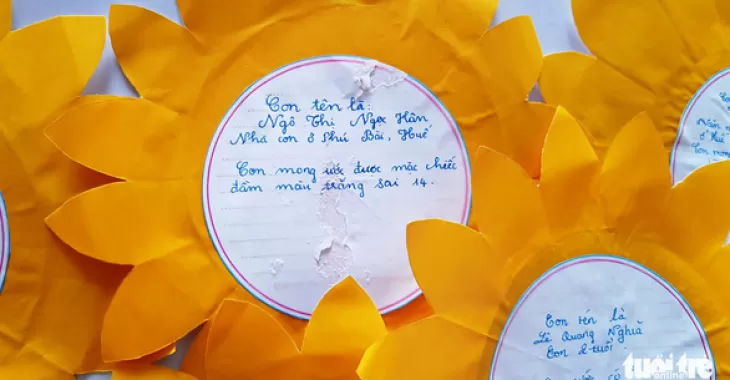 Con tên là:
Ngô Thị Ngọc Hân
Nhà con ở Phú Bài, Huế
Con mong ước được mặc chiếc
đầm màu trắng sai 14.
Con tên là
Lê Quang Nghĩa
Con 2 tuổi.
ở Huế
Con mong
tuổi trẻ
online